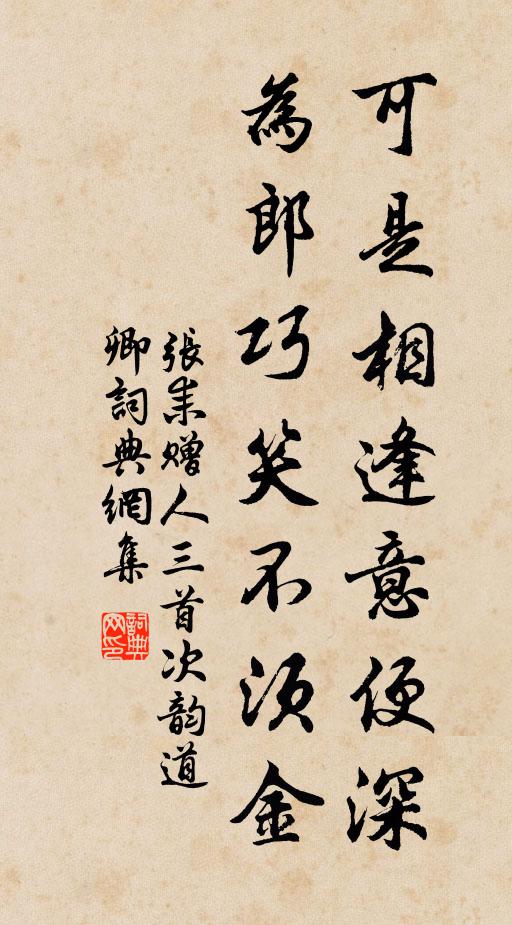 可是相逢意便深
為郎巧笑不須金
張耒贈人三首次韵道
卿詞典網集
詞典网印